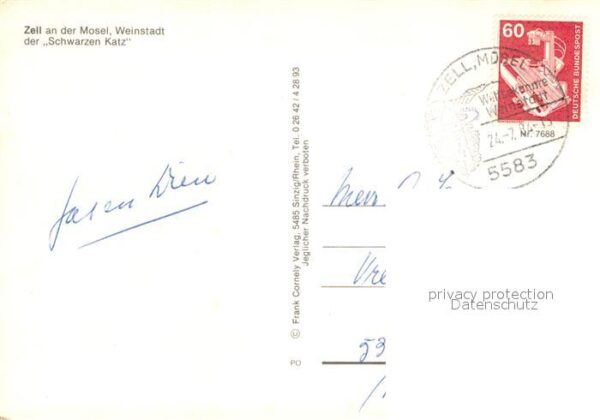 Zell an der Mosel, Weinstadt
der „Schwarzen Katz"
60
DEUTSCHE BUNDESPOST
ZELL, MOSEL
Weltbekannte
Weinstadt
24.-7.
Nr. 7688
5583
© Frank Cornely Verlag, 5485 Sinzig/Rhein, Tel. 0 26 42 / 4 28 93
Jeglicher Nachdruck verboten
PO
privacy protection
Datenschutz
53